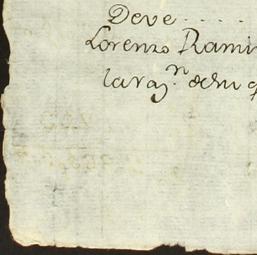 Deve . . . . .
Lorenzo Rami
la raz.ⁿ de su q